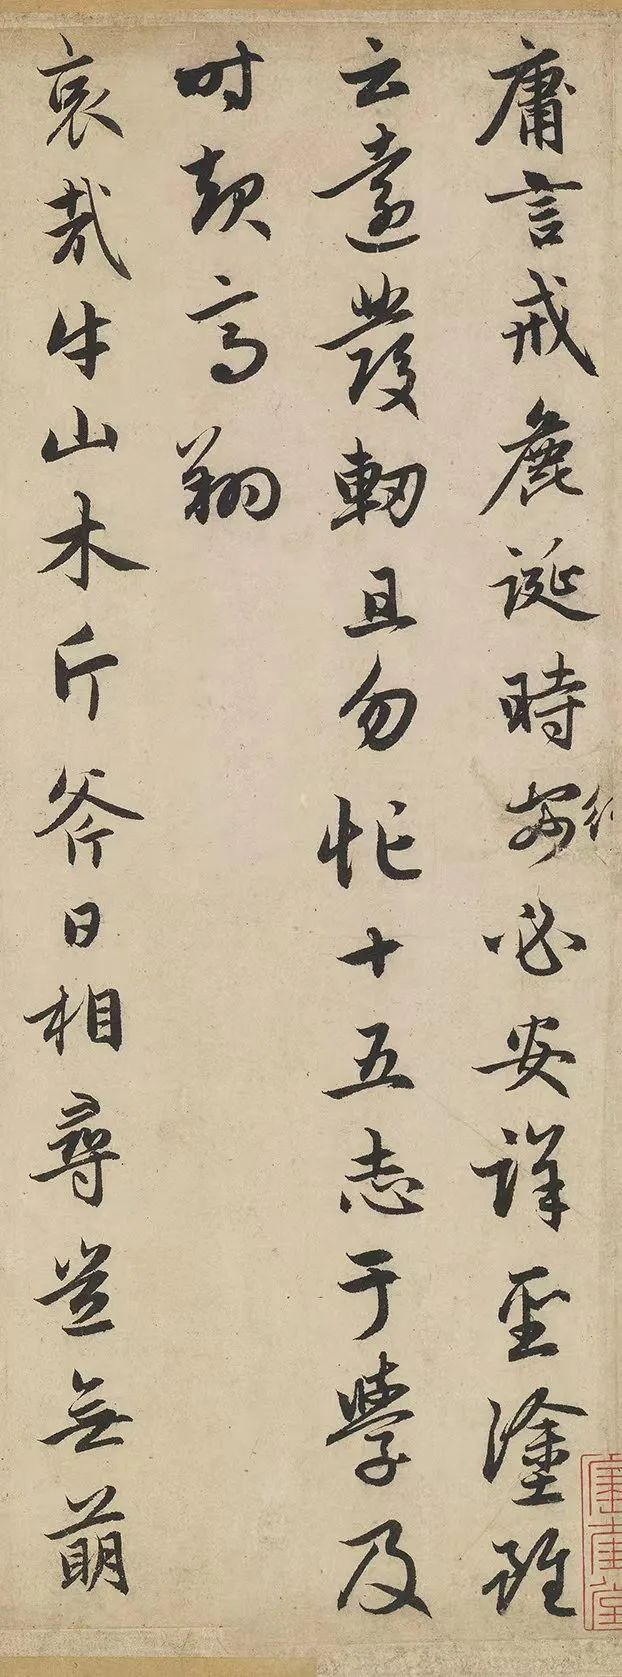 庸言戒麄誕時行必安詳聖塗雖
云遠發軔且勿忙十五志于學及
时起高翔
哀哉牛山木斤斧日相尋豈無萌